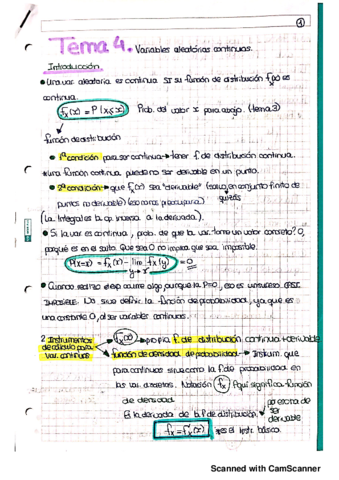 1
Tema 4. Variables aleatorias continuas.
Introducción.
• Una var. aleatoria es continua SI su función de distribución fx(x) es
continua.
Fx(x) = P(X≤x) Prob. del valor x para abajo. (tema 3)
función de distribución
• 1ª condición para ser continua → tener f. de distribución continua.
• Una función continua puede no ser derivable en un punto.
• 2ª condición → que Fx(x) sea "derivable" (salvo en conjunto finito de
puntos no derivable)
(La integral es la op. inversa a la derivada).
• Si la var. es continua, prob. de que la var. tome un valor concreto? 0,
porque es en el salto. Que sea 0 no implica que sea imposible.
P(X=x) = Fx(x) - lim Fx(y) = 0
y→x⁻
• Cuando realizo el exp. ocurre algo aunque la P=0, es un suceso CASI
IMPOSIBLE. No sirve definir la función de probabilidad, ya que es
una constante 0, al ser variables continuas.
2. Instrumentos
de cálculo para
var. continuas
Fx(x) → propia f. de distribución continua + derivable
función de densidad de probabilidad → Instrum. que
para continuas sirve como la f. de probabilidad en
las var. discretas. Notación fx Aquí significa función
de densidad.
Es la derivada de la f. de distribución.
por eso ha de
ser
derivable
fx = F'x(x) → es el instr. básico.
Scanned with CamScanner